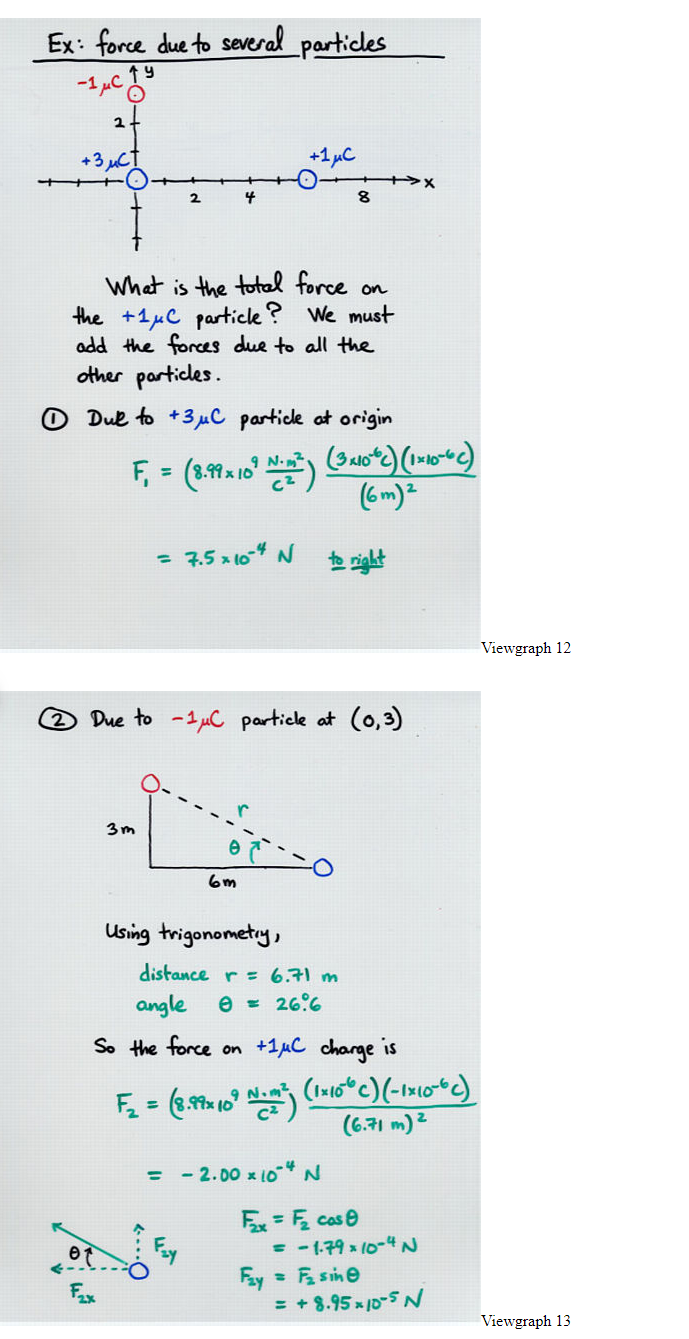 Ex: force due to several particles
y
-1 μC
2
+3 μC
+1 μC
x
2 4 8
What is the total force on
the +1μC particle? We must
add the forces due to all the
other particles.
① Due to +3μC particle at origin
F₁ = (8.99 x 10⁹ N·m²/C²) (3x10⁻⁶C)(1x10⁻⁶C)/(6m)²
= 7.5 x 10⁻⁴ N to right
Viewgraph 12
② Due to -1μC particle at (0,3)
r
3m
θ
6m
Using trigonometry,
distance r = 6.71 m
angle θ = 26.°6
So the force on +1μC charge is
F₂ = (8.99x10⁹ N·m²/C²) (1x10⁻⁶C)(-1x10⁻⁶C)/(6.71 m)²
= - 2.00 x 10⁻⁴ N
F₂ₓ = F₂ cosθ
= - 1.79 x 10⁻⁴ N
θ F₂y
F₂y = F₂ sinθ
F₂ₓ
= + 8.95 x 10⁻⁵ N
Viewgraph 13